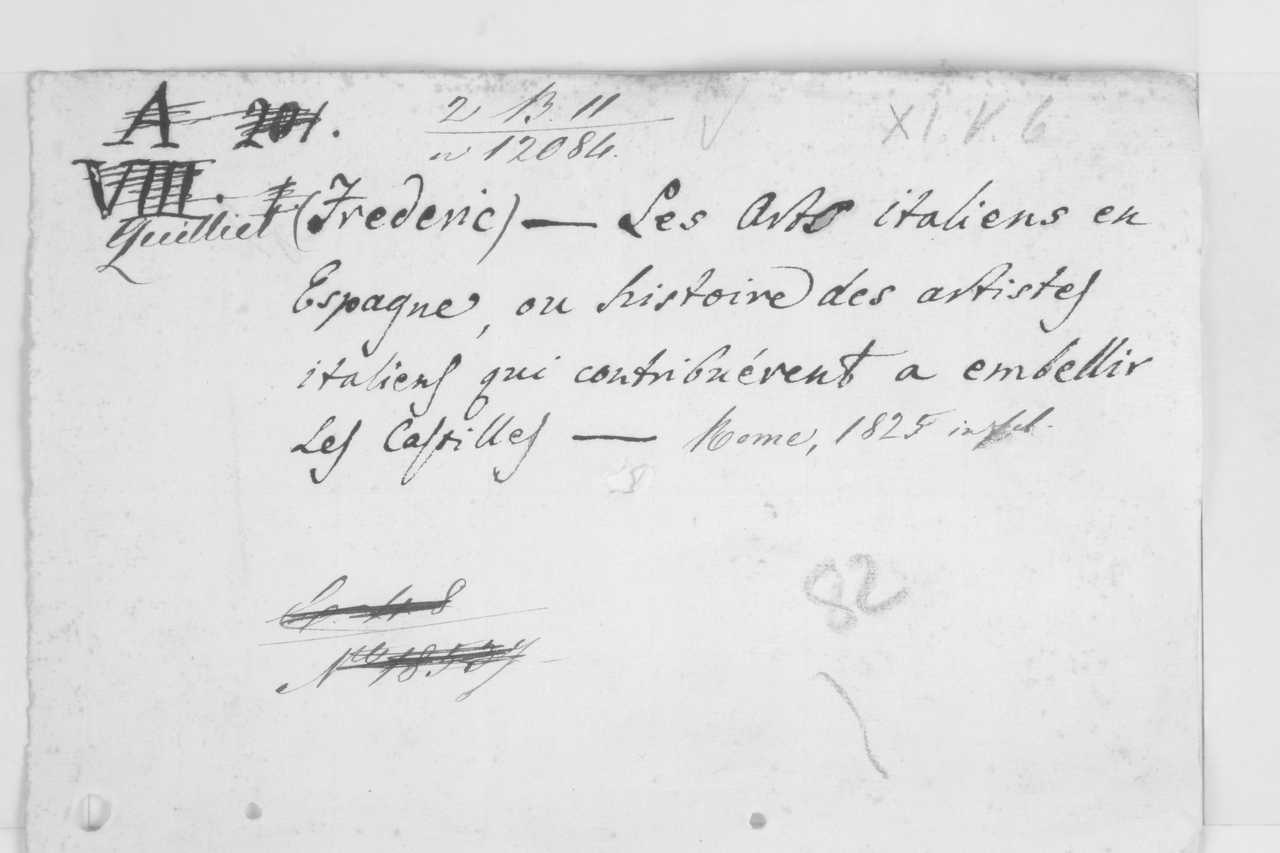 A 201.
2 B. 11
n 12084.
XI. V. 6
VIII.
Quilliet (Frederic) — Les Arts italiens en
Espagne, ou histoire des artistes
italiens qui contribuérent a embellir
Les Castilles — Rome, 1825 in fol.
82